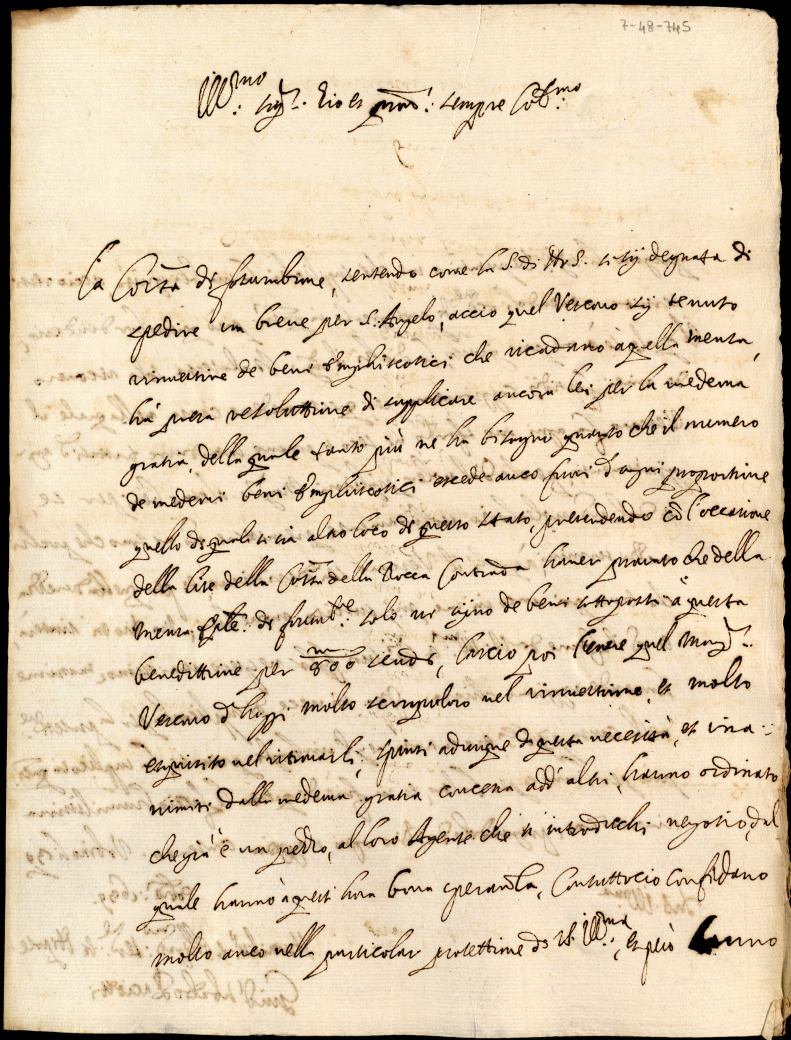 7-48-745
Ill.mo Sig.r Zio et pron: sempre Col.mo
La Città di fossumbrone, sentendo come la S. di N.S. si sij degnata di
spedire un breve per S. Angelo, acciò quel Vescovo sij tenuto
rinvestire de beni Emphiteotici che ricadano à q.lla mensa,
hà presa resoluttione di supplicare ancora lei per la medema
gratia, della quale tanto più ne ha bisogno quanto che il numero
de medemi beni Emphiteotici eccede anco fuori d'ogni proportione
quello di qual si sia altro loco di questo stato, pretendendo cò l'occasione
della lite della Città della Rocca Contrada haver provato che della
mensa Ep.le di fossumb.e solo vi sijno de beni sottoposti à questa
benedittione per 800 scudi, lascio poi essere quel Mons.r
Vescovo d'hoggi molto scrupuloso nel rinvestire, et molto
esquisito nel ritrovarli, spinti adunque di questa necessità, et ina-
nimiti dalla medema gratia concessa add altri, hanno ordinato
che già è un pezzo, al loro Agente che si introdicchi negotio, dal
quale hanno à quest'hora bona speranza, Contuttociò confidano
molto anco nella particolar protettione di V.S. Ill.ma, et però hanno